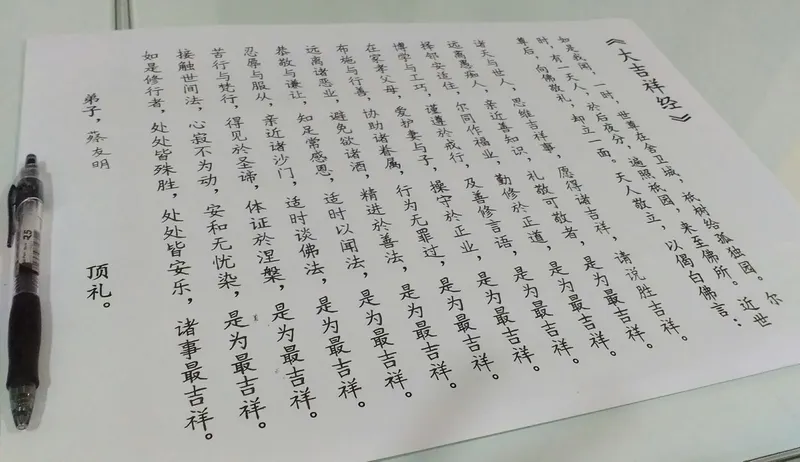 《大吉祥经》
如是我闻，一时，世尊在舍卫城，祇树给孤独园。尔
时，有一天人，於后夜分，遍照祇园，来至佛所。近世
尊后，向佛敬礼，却立一面。天人敬立，以偈白佛言：
诸天与世人，思维吉祥事，愿得诸吉祥，请说胜吉祥。
远离愚痴人，亲近善知识，礼敬可敬者，是为最吉祥。
择邻安适住，尔同作福业，勤修於正道，是为最吉祥。
博学与工巧，谨遵於戒行，及善修言语，是为最吉祥。
在家孝父母，爱护妻与子，操守於正业，是为最吉祥。
布施与行善，协助诸眷属，行为无罪过，是为最吉祥。
远离诸恶业，避免欲诸酒，精进於善法，是为最吉祥。
恭敬与谦让，知足常感恩，适时以闻法，是为最吉祥。
忍辱与服从，亲近诸沙门，适时谈佛法，是为最吉祥。
苦行与梵行，得见於圣谛，体证於涅槃，是为最吉祥。
接触世间法，心寂不为动，安和无忧染，是为最吉祥。
如是修行者，处处皆殊胜，处处皆安乐，诸事最吉祥。
弟子，蔡友明 顶礼。